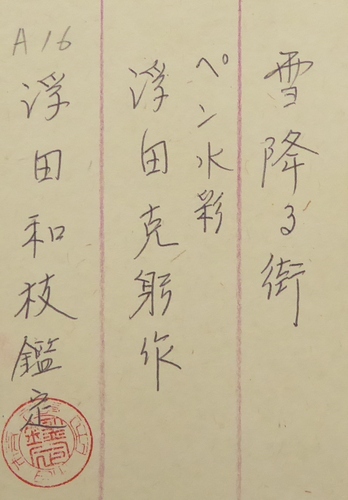 雪降る街
ペン水彩
浮田克躬作
浮田和枝鑑定
A16